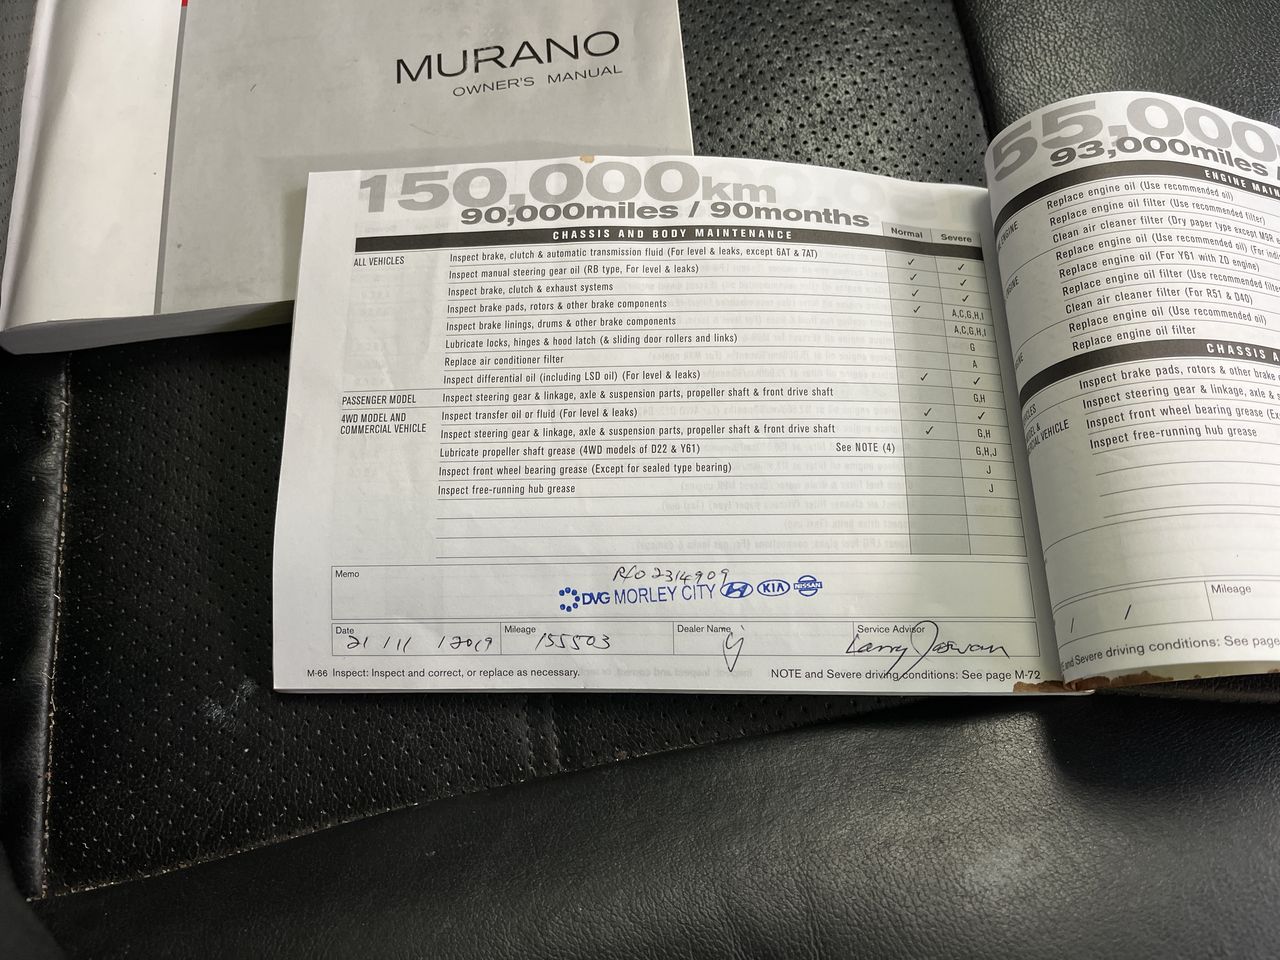 MURANO
OWNER'S MANUAL
150,000km
90,000miles / 90months
CHASSIS AND BODY MAINTENANCE Normal Severe
ALL VEHICLES Inspect brake, clutch & automatic transmission fluid (For level & leaks, except 6AT & 7AT) ✓ ✓
Inspect manual steering gear oil (RB type, For level & leaks) ✓ ✓
Inspect brake, clutch & exhaust systems ✓ ✓
Inspect brake pads, rotors & other brake components ✓ A,C,G,H,I
Inspect brake linings, drums & other brake components A,C,G,H,I
Lubricate locks, hinges & hood latch (& sliding door rollers and links) G
Replace air conditioner filter A
Inspect differential oil (including LSD oil) (For level & leaks) ✓ ✓
PASSENGER MODEL Inspect steering gear & linkage, axle & suspension parts, propeller shaft & front drive shaft G,H
4WD MODEL AND COMMERCIAL VEHICLE Inspect transfer oil or fluid (For level & leaks) ✓ ✓
Inspect steering gear & linkage, axle & suspension parts, propeller shaft & front drive shaft ✓ G,H
Lubricate propeller shaft grease (4WD models of D22 & Y61) See NOTE (4) G,H,J
Inspect front wheel bearing grease (Except for sealed type bearing) J
Inspect free-running hub grease J
Memo
R/O 2314909
DVG MORLEY CITY KIA NISSAN
Date 21/11/2019 Mileage 155503 Dealer Name Service Advisor Larry
M-66 Inspect: Inspect and correct, or replace as necessary. NOTE and Severe driving conditions: See page M-72
55,000
93,000miles /
ENGINE MAIN
Replace engine oil (Use recommended oil)
Replace engine oil filter (Use recommended filter)
Clean air cleaner filter (Dry paper type except M9R
Replace engine oil (Use recommended oil) (For indi
Replace engine oil (For Y61 with ZD engine)
Replace engine oil filter (Use recommended filte
Clean air cleaner filter (For R51 & D40)
Replace engine oil (Use recommended oil)
Replace engine oil filter
CHASSIS A
Inspect brake pads, rotors & other brake
Inspect steering gear & linkage, axle & s
Inspect front wheel bearing grease (Ex
Inspect free-running hub grease
/ / Mileage
and Severe driving conditions: See page